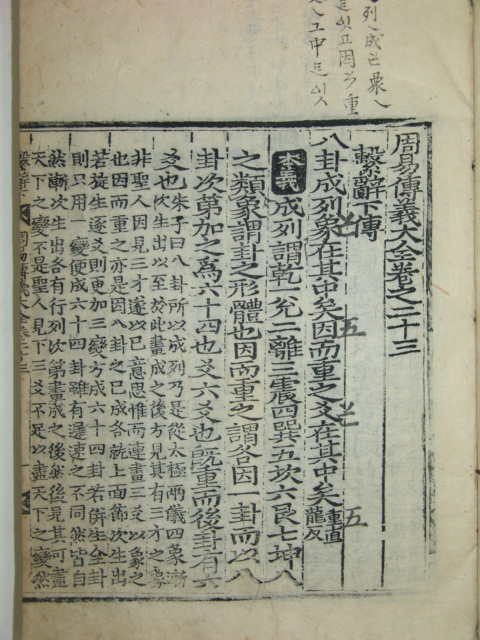 列成굔象八
周易傳義大全卷之二十三
繫辭下傳
八卦成列象在其中矣因而重之爻在其中矣重直龍反
本義成列謂乾一兌二離三震四巽五坎六艮七坤八
之類象謂卦之形體也因而重之謂各因一卦而以八
卦次第加之爲六十四也爻六爻也旣重而後卦有六
爻也朱子曰八卦所以成列乃是從太極兩儀四象漸
次生出以至於此畫成之後方見其有三才之象
非聖人因見三才遂以己意思惟而連畫三爻以象之
也因而重之亦是因八卦之已成各就上面節次生出
若旋生逐爻則更加三變方成六十四卦若倂生全卦
則只用一變便成六十四卦雖有遲速之不同然皆自
然漸次生出各有行列次第畫成之後然後見其可盡
天下之變不是聖人見下三爻不足以盡天下之變然